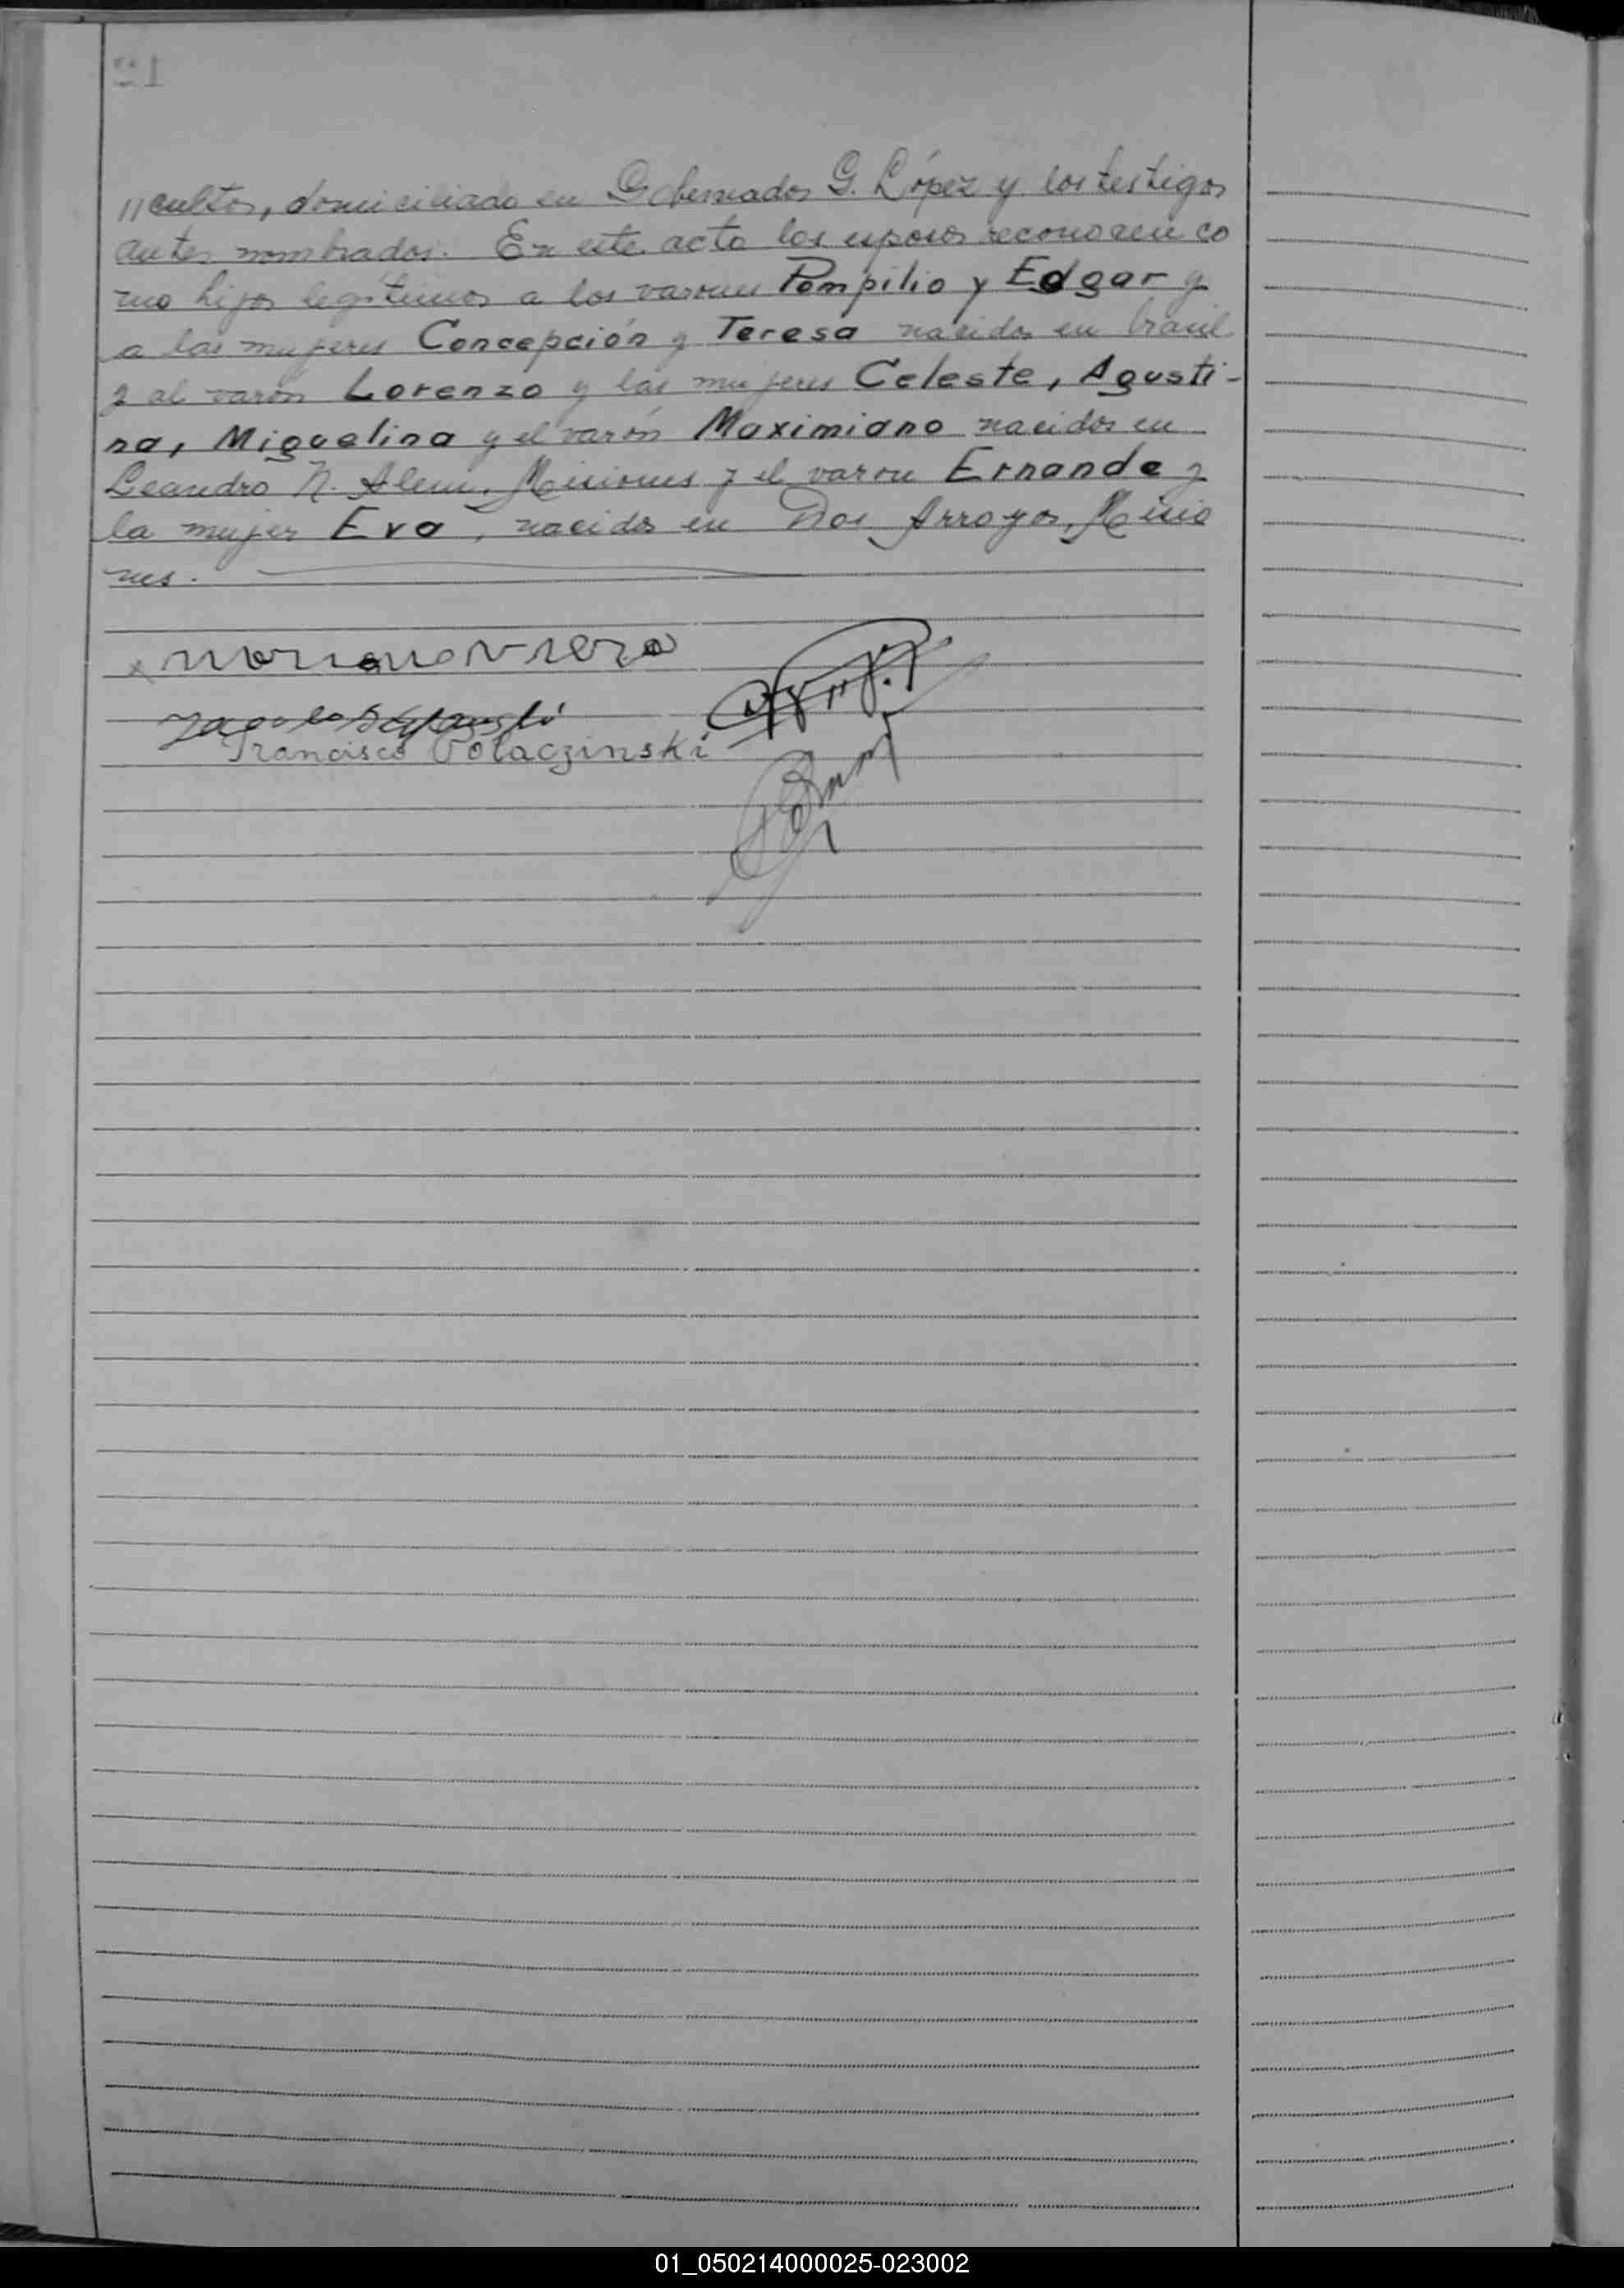 21
//cultor, domiciliado en Gobernador G. López y los testigos
antes nombrados. En este acto los esposos reconocen co
mo hijos legítimos a los varones Pompilio y Edgar y
a las mujeres Concepción y Teresa nacidos en brasil
y al varón Lorenzo y las mujeres Celeste, Agusti-
na, Miguelina y el varón Maximiano nacidos en
Leandro N. Alem, Misiones y el varon Ernande y
la mujer Eva, nacidos en Dos Arroyos, Misio
nes.
Francisco Polaczinski
01_050214000025-023002